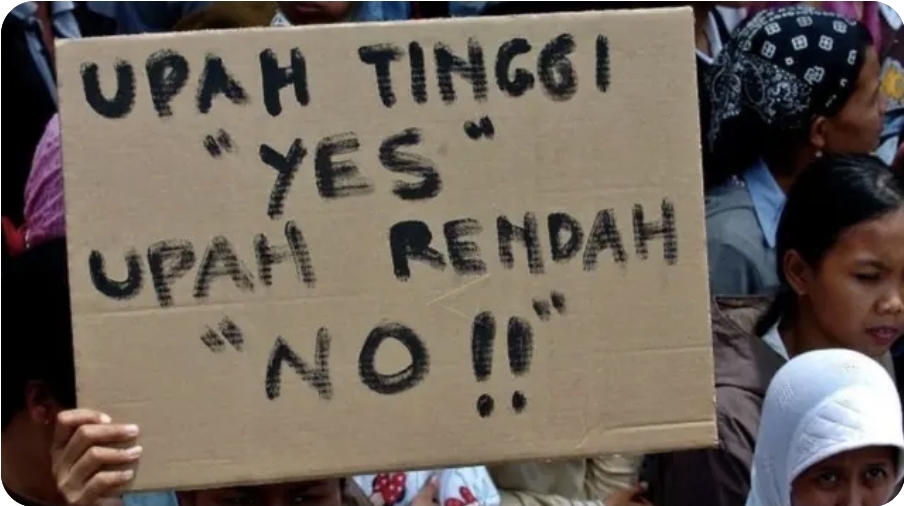 UPAH TINGGI
"YES"
UPAH RENDAH
"NO !!"